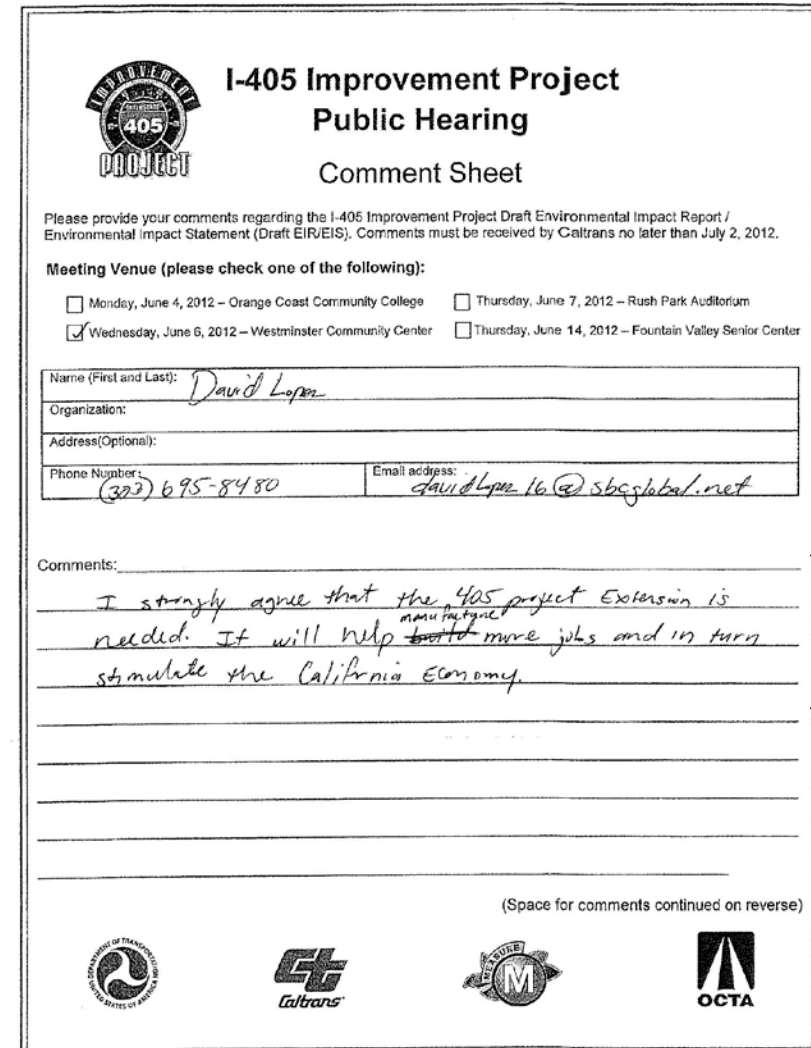 IMPROVEMENT
405
PROJECT
I-405 Improvement Project
Public Hearing
Comment Sheet
Please provide your comments regarding the I-405 Improvement Project Draft Environmental Impact Report /
Environmental Impact Statement (Draft EIR/EIS). Comments must be received by Caltrans no later than July 2, 2012.
Meeting Venue (please check one of the following):
Monday, June 4, 2012 – Orange Coast Community College Thursday, June 7, 2012 – Rush Park Auditorium
Wednesday, June 6, 2012 – Westminster Community Center Thursday, June 14, 2012 – Fountain Valley Senior Center
Name (First and Last): David Lopez
Organization:
Address(Optional):
Phone Number: (323) 695-8480 Email address: davidlopez16@sbcglobal.net
Comments:
I strongly agree that the 405 project Extension is
manufacture
needed. It will help build more jobs and in turn
stimulate the California Economy.
(Space for comments continued on reverse)
DEPARTMENT OF TRANSPORTATION
UNITED STATES OF AMERICA
Caltrans
MEASURE
M
OCTA